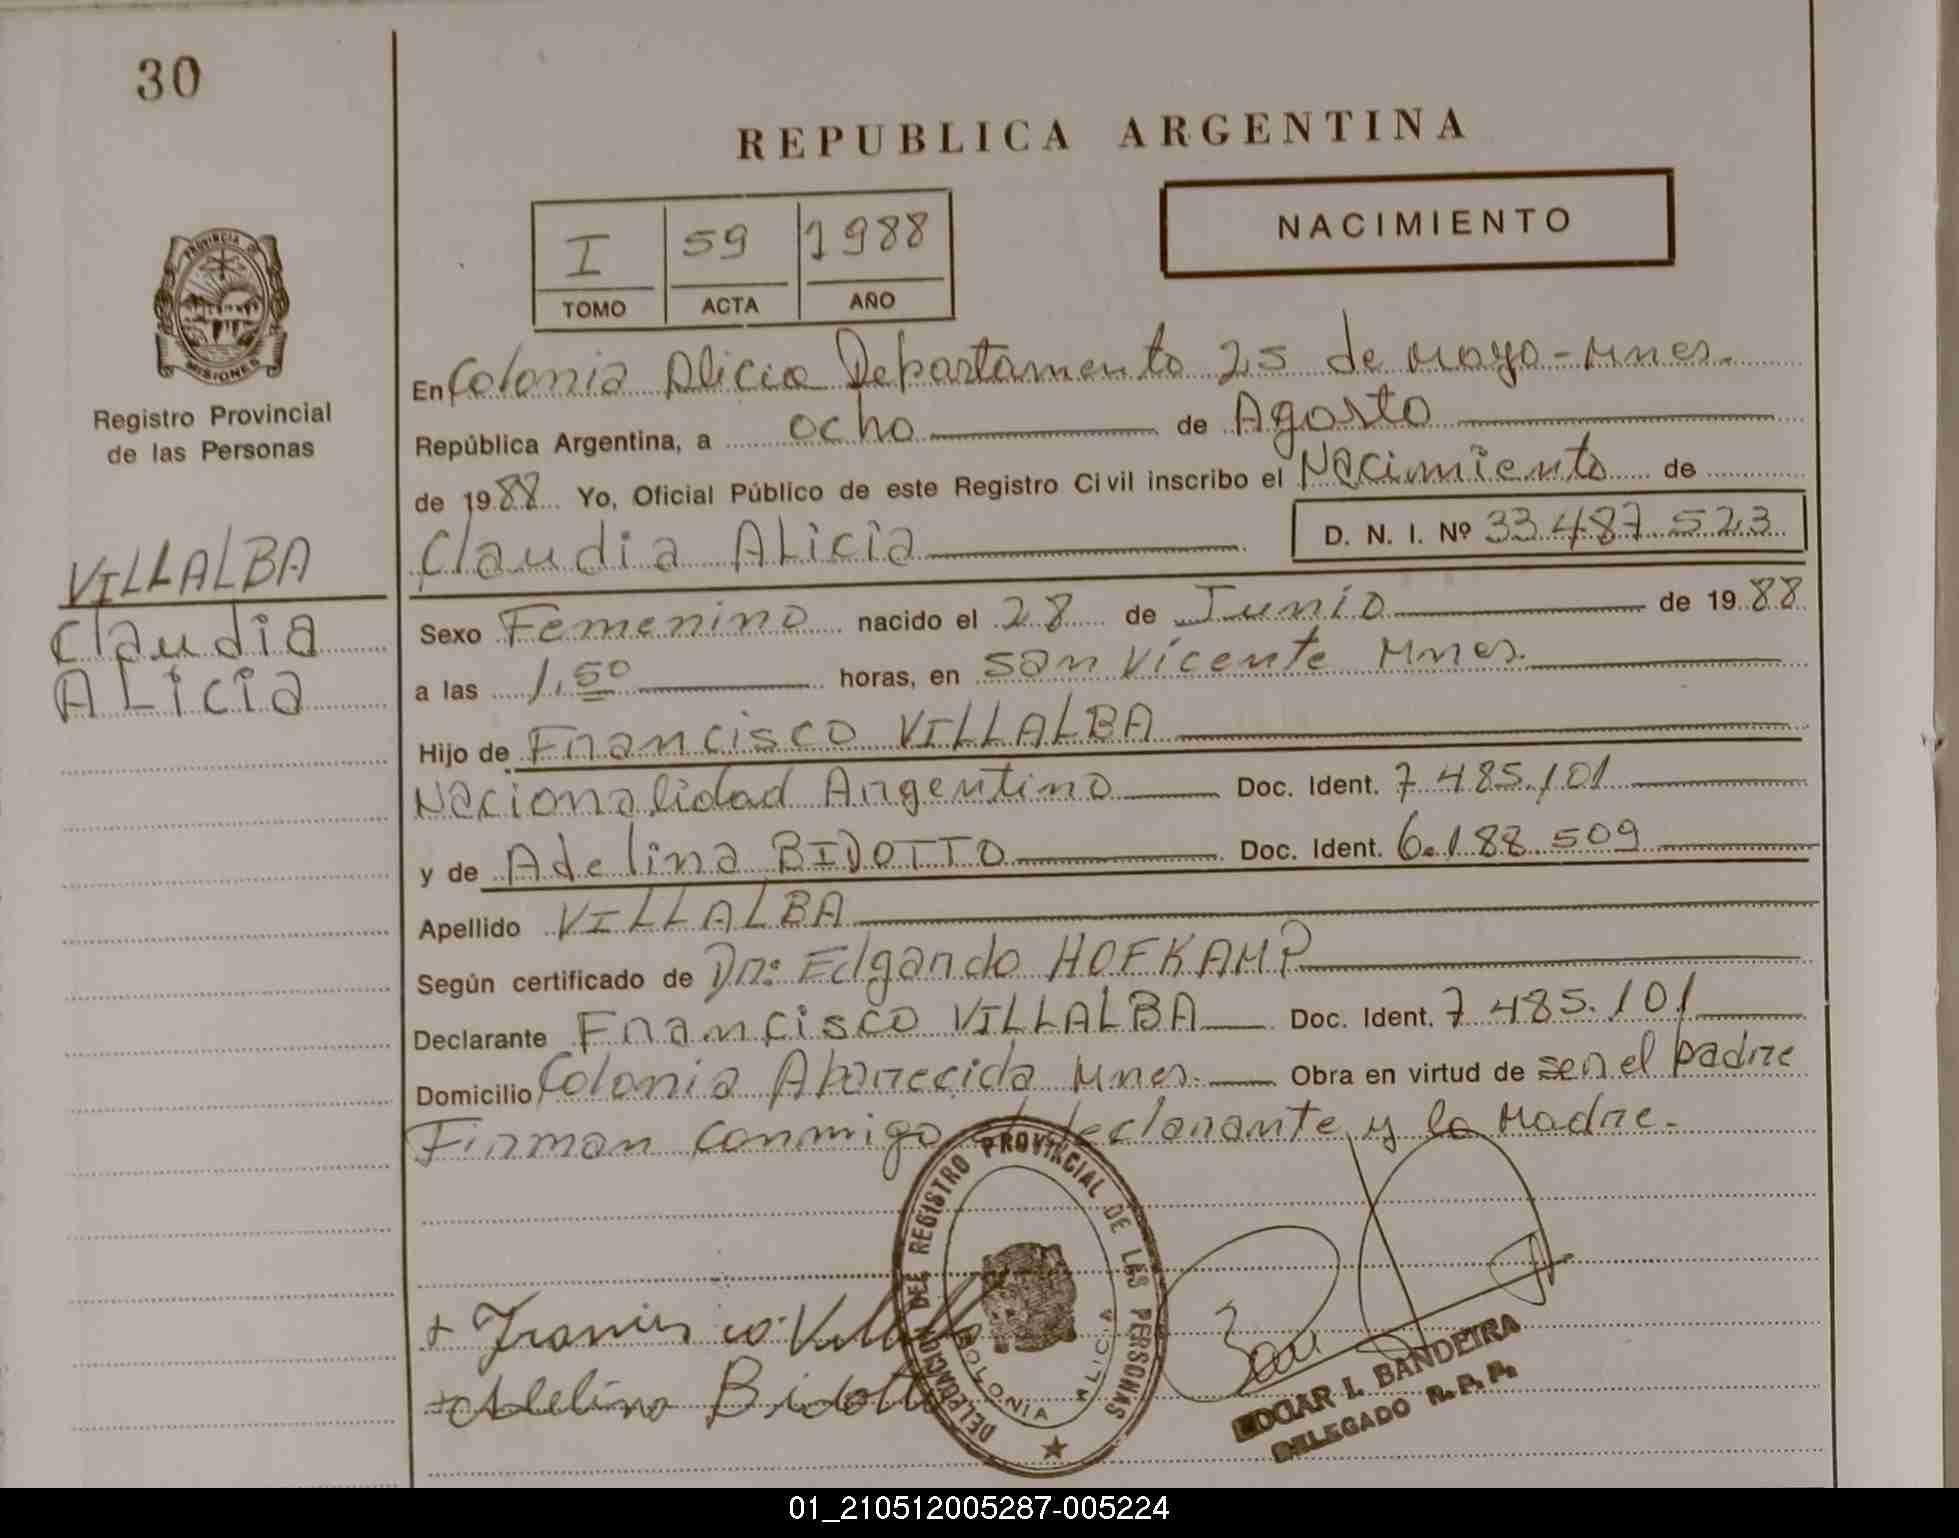 30
REPUBLICA ARGENTINA
I 59 1988
TOMO ACTA AÑO
NACIMIENTO
PROVINCIA DE
MISIONES
Registro Provincial
de las Personas
VILLALBA
Claudia
Alicia
En Colonia Alicia Departamento 25 de Mayo - Mnes.
República Argentina, a ocho de Agosto
de 1988 Yo, Oficial Público de este Registro Civil inscribo el Nacimiento de
Claudia Alicia D. N. I. Nº 33.487.523
Sexo Femenino nacido el 28 de Junio de 1988
a las 1,50 horas, en San Vicente Mnes.
Hijo de Francisco VILLALBA
Nacionalidad Argentino Doc. Ident. 7.485.101
y de Adelina BIDOTTO Doc. Ident. 6.188.509
Apellido VILLALBA
Según certificado de Dr: Edgardo HOFKAMP
Declarante Francisco VILLALBA Doc. Ident. 7.485.101
Domicilio Colonia Aparecida Mnes. Obra en virtud de ser el padre
Firman conmigo el declarante y la Madre.
DELEGACION DEL REGISTRO PROVINCIAL DE LAS PERSONAS
COLONIA ALICIA
+ Francisco Villalba
+ Adelina Bidotto
EDGAR I. BANDEIRA
DELEGADO R. P. P.
01_210512005287-005224